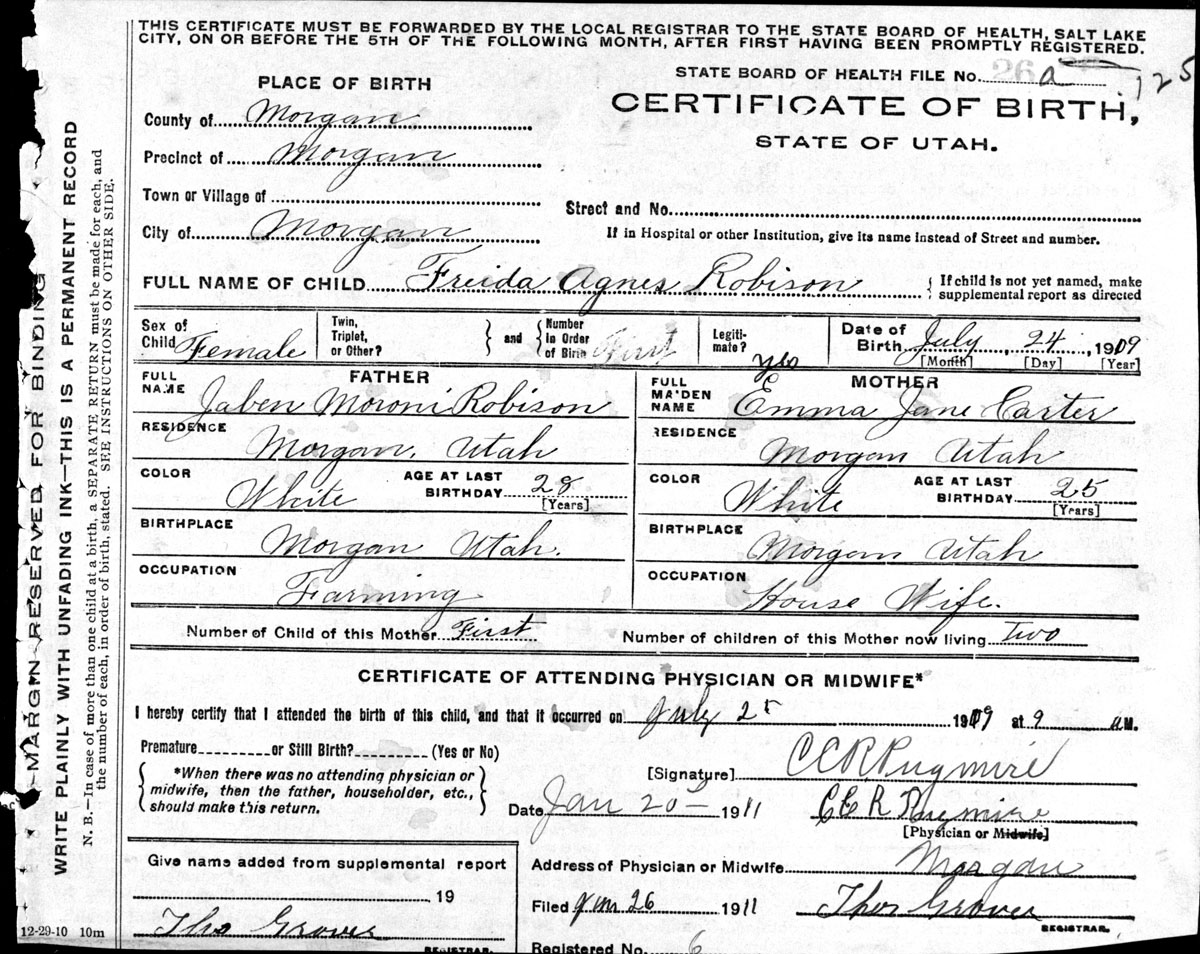 THIS CERTIFICATE MUST BE FORWARDED BY THE LOCAL REGISTRAR TO THE STATE BOARD OF HEALTH, SALT LAKE
CITY, ON OR BEFORE THE 5TH OF THE FOLLOWING MONTH, AFTER FIRST HAVING BEEN PROMPTLY REGISTERED.
STATE BOARD OF HEALTH FILE No. 26 a 125
PLACE OF BIRTH
CERTIFICATE OF BIRTH,
STATE OF UTAH.
County of Morgan
Precinct of Morgan
Town or Village of
Street and No.
City of Morgan
If in Hospital or other Institution, give its name instead of Street and number.
FULL NAME OF CHILD Freida Agnes Robison
If child is not yet named, make
supplemental report as directed
Sex of Child Female
Twin, Triplet, or Other?
and
Number In Order of Birth First
Legitimate? yes
Date of Birth July, 24, 1909
[Month] [Day] [Year]
FATHER
FULL NAME Jaben Moroni Robison
RESIDENCE Morgan, Utah
COLOR White
AGE AT LAST BIRTHDAY 28
[Years]
BIRTHPLACE Morgan Utah.
OCCUPATION Farming
MOTHER
FULL MAIDEN NAME Emma Jane Carter
RESIDENCE Morgan Utah
COLOR White
AGE AT LAST BIRTHDAY 25
[Years]
BIRTHPLACE Morgan Utah
OCCUPATION House Wife.
Number of Child of this Mother First
Number of children of this Mother now living Two
CERTIFICATE OF ATTENDING PHYSICIAN OR MIDWIFE*
I hereby certify that I attended the birth of this child, and that it occurred on July 25 1909 at 9 a M.
Premature or Still Birth? (Yes or No)
*When there was no attending physician or
midwife, then the father, householder, etc.,
should make this return.
[Signature] C E R Pugmire
Date Jan 20 1911
C E R Pugmire
[Physician or Midwife]
Give name added from supplemental report
19
Tho Grover
REGISTRAR.
Address of Physician or Midwife Morgan
Filed Jan 26 1911 Thos Grover
REGISTRAR.
Registered No. 6
12-29-10 10m
MARGIN RESERVED FOR BINDING
WRITE PLAINLY WITH UNFADING INK—THIS IS A PERMANENT RECORD
N. B.—In case of more than one child at a birth, a SEPARATE RETURN must be made for each, and
the number of each, in order of birth, stated. SEE INSTRUCTIONS ON OTHER SIDE.